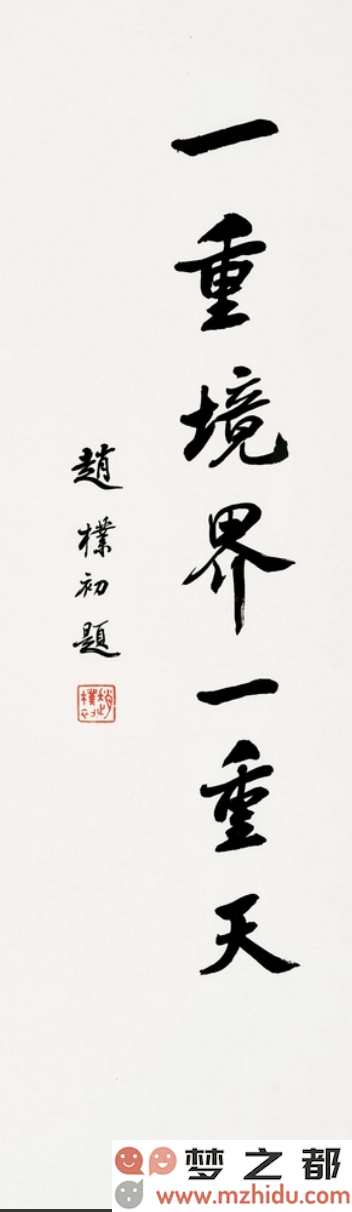 一重境界一重天
趙樸初題
趙樸初
梦之都
www.mzhidu.com